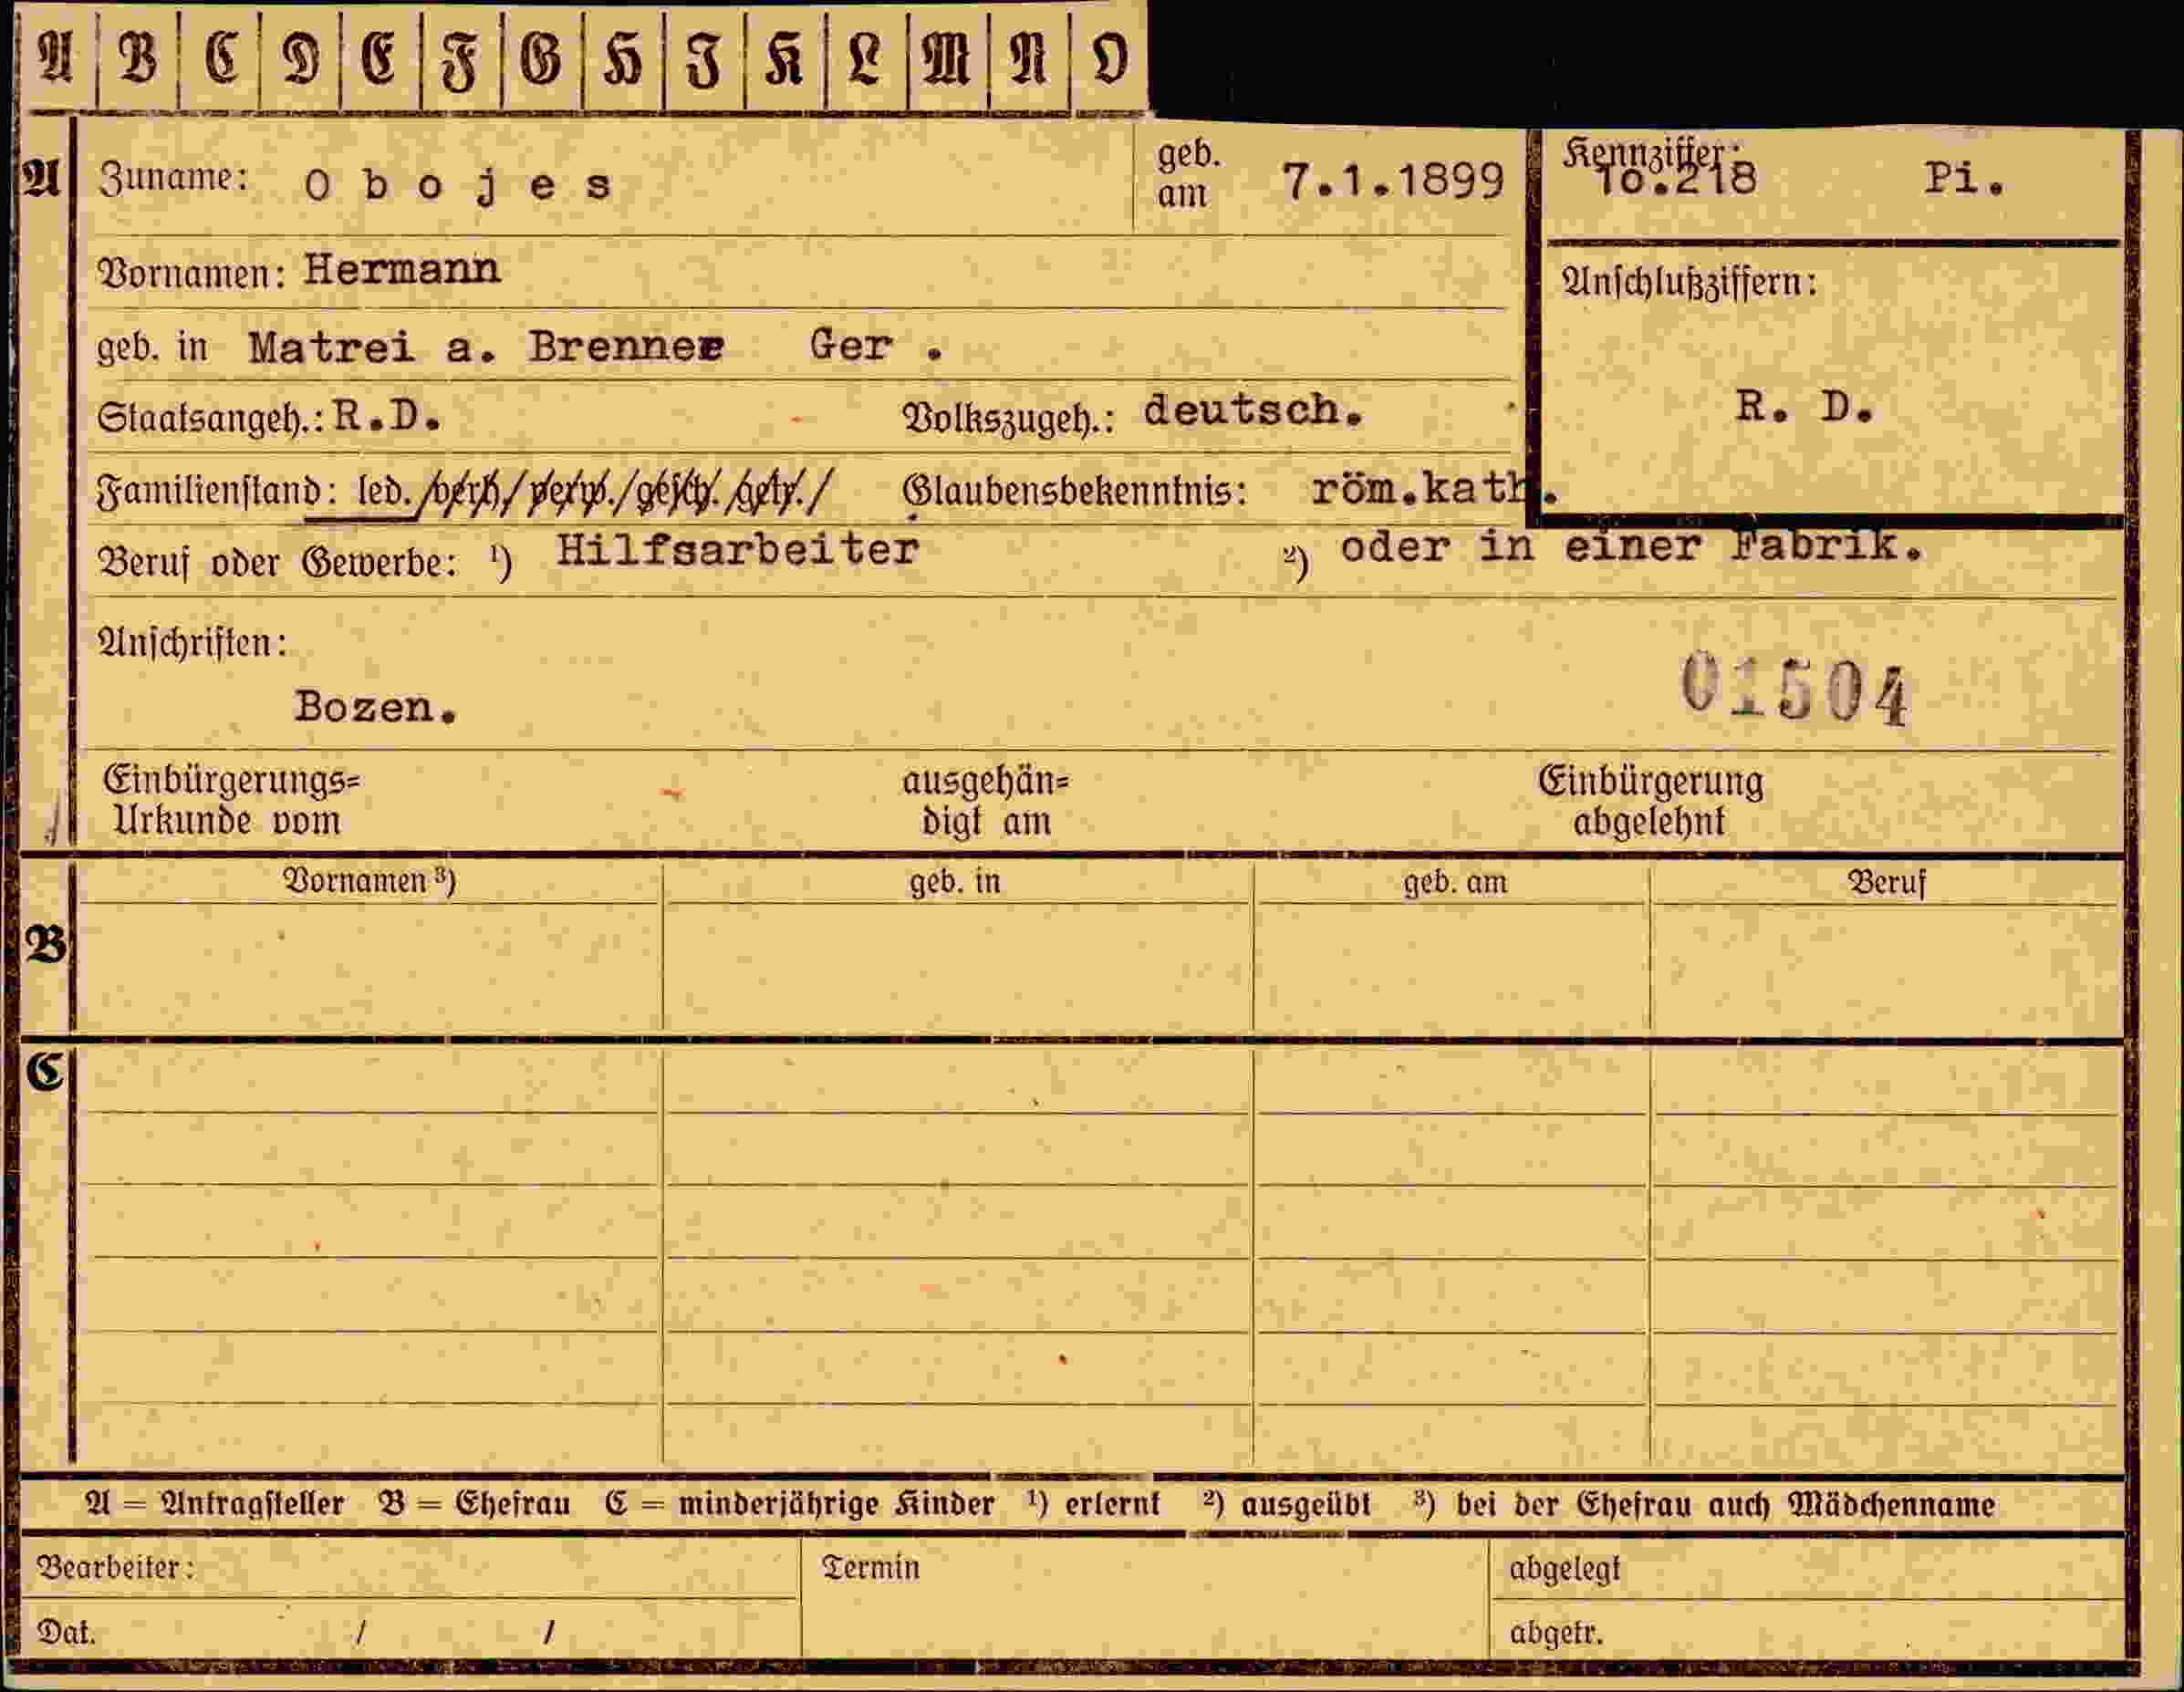 A B C D E F G H I K L M N O
A Zuname: O b o j e s geb. am 7.1.1899 Kennziffer: 10.218 Pi.
Vornamen: Hermann Anschlußziffern:
geb. in Matrei a. Brenner Ger .
Staatsangeh.: R.D. Volkszugeh.: deutsch. R. D.
Familienstand: led./verh/verw./gesch./getr./ Glaubensbekenntnis: röm.kath.
Beruf oder Gewerbe: ¹) Hilfsarbeiter ²) oder in einer Fabrik.
Anschriften:
01504
Bozen.
Einbürgerungs= ausgehän= Einbürgerung
Urkunde vom digt am abgelehnt
Vornamen ³) geb. in geb. am Beruf
B
C
A = Antragsteller B = Ehefrau C = minderjährige Kinder ¹) erlernt ²) ausgeübt ³) bei der Ehefrau auch Mädchenname
Bearbeiter: Termin abgelegt
Dat. / / abgetr.